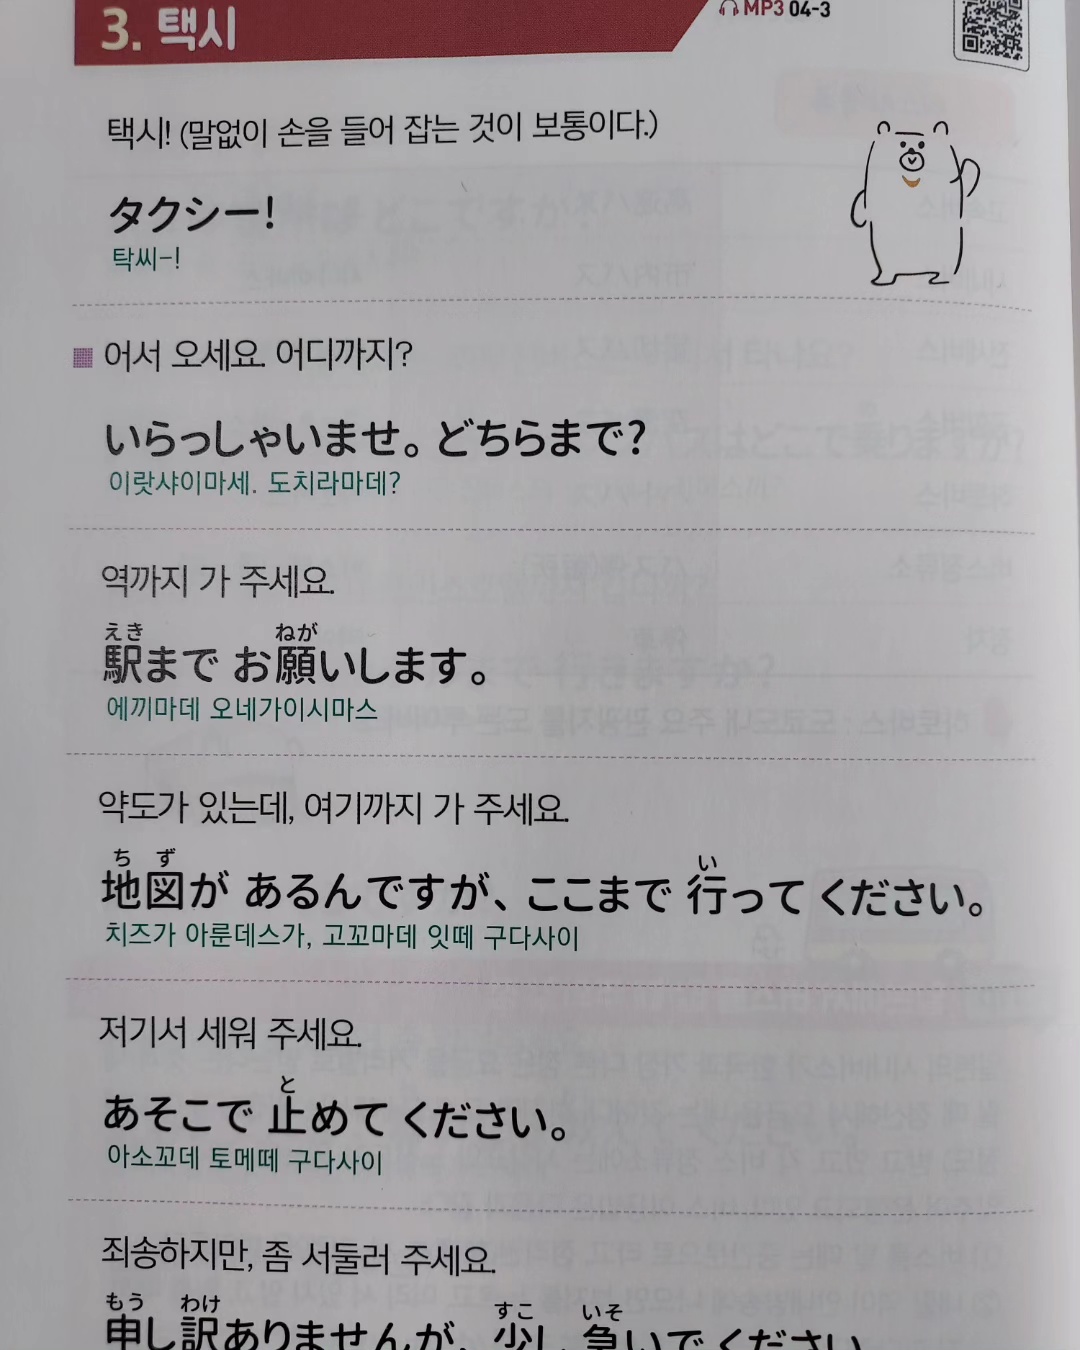 3. 택시
MP3 04-3
택시! (말없이 손을 들어 잡는 것이 보통이다.)
タクシー!
탁씨-!
어서 오세요. 어디까지?
いらっしゃいませ。どちらまで?
이랏샤이마세. 도치라마데?
역까지 가 주세요.
えき ねが
駅まで お願いします。
에끼마데 오네가이시마스
약도가 있는데, 여기까지 가 주세요.
ち ず い
地図が あるんですが、ここまで 行って ください。
치즈가 아룬데스가, 고꼬마데 잇떼 구다사이
저기서 세워 주세요.
と
あそこで 止めて ください。
아소꼬데 토메떼 구다사이
죄송하지만, 좀 서둘러 주세요.
もう わけ すこ いそ
申し訳ありませんが、少し 急いで ください